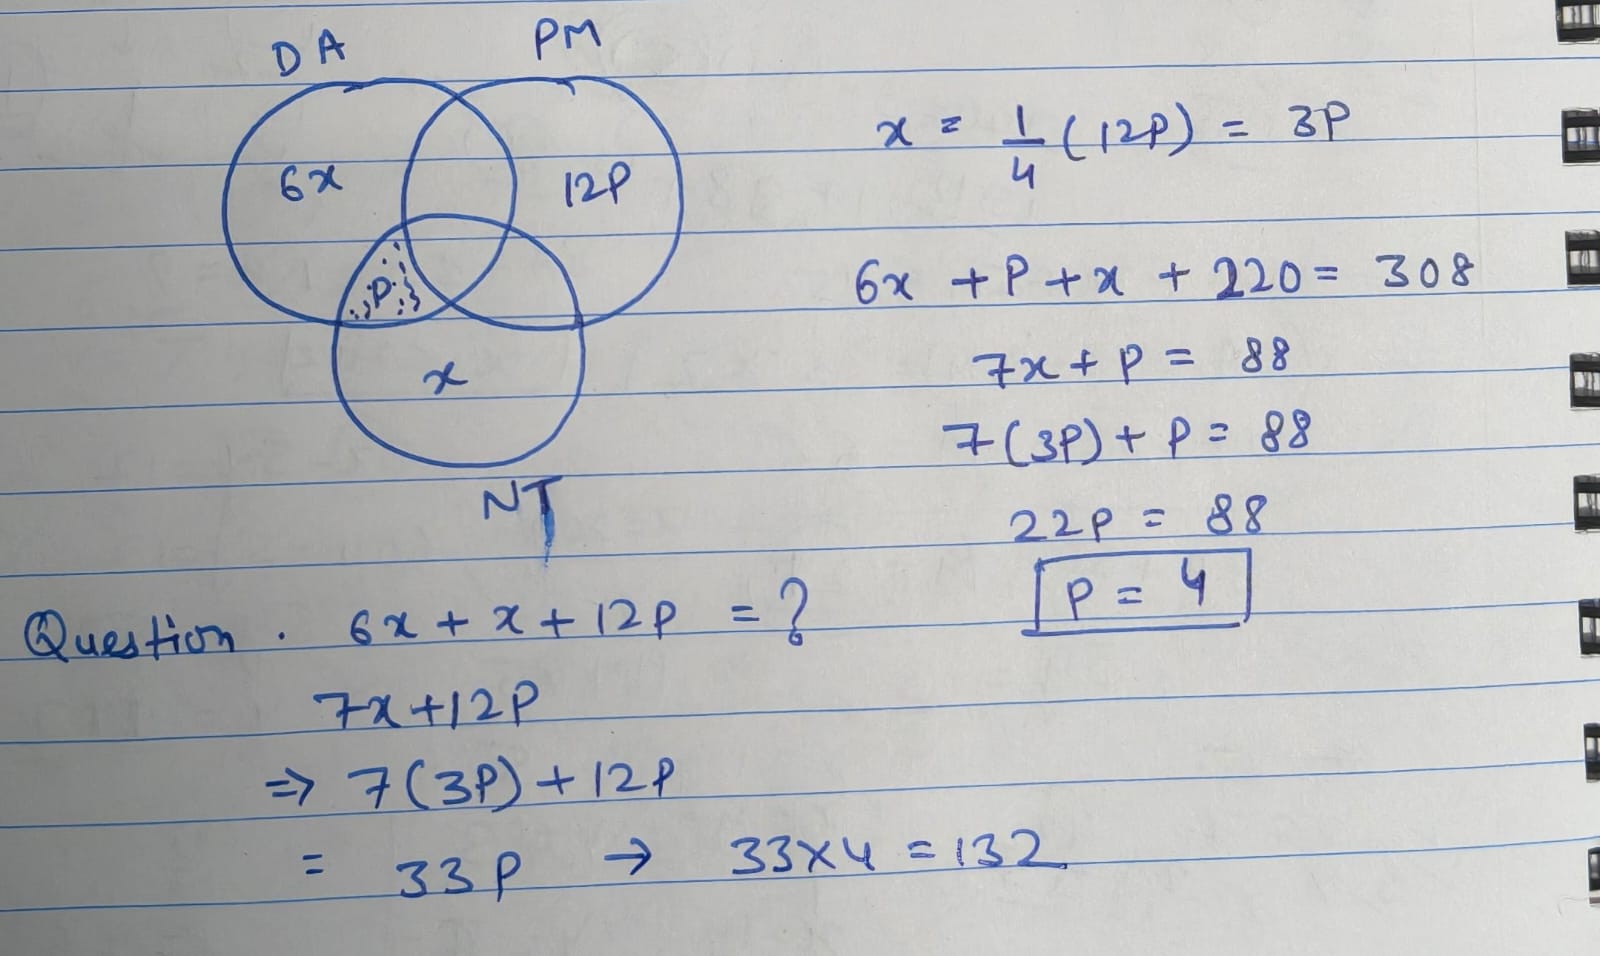 DA
PM
6x
12P
P
x
NT
x = 1/4 (12P) = 3P
6x + P + x + 220 = 308
7x + P = 88
7(3P) + P = 88
22P = 88
P = 4
Question. 6x + x + 12P = ?
7x+12P
⇒ 7(3P) + 12P
= 33P → 33x4 = 132